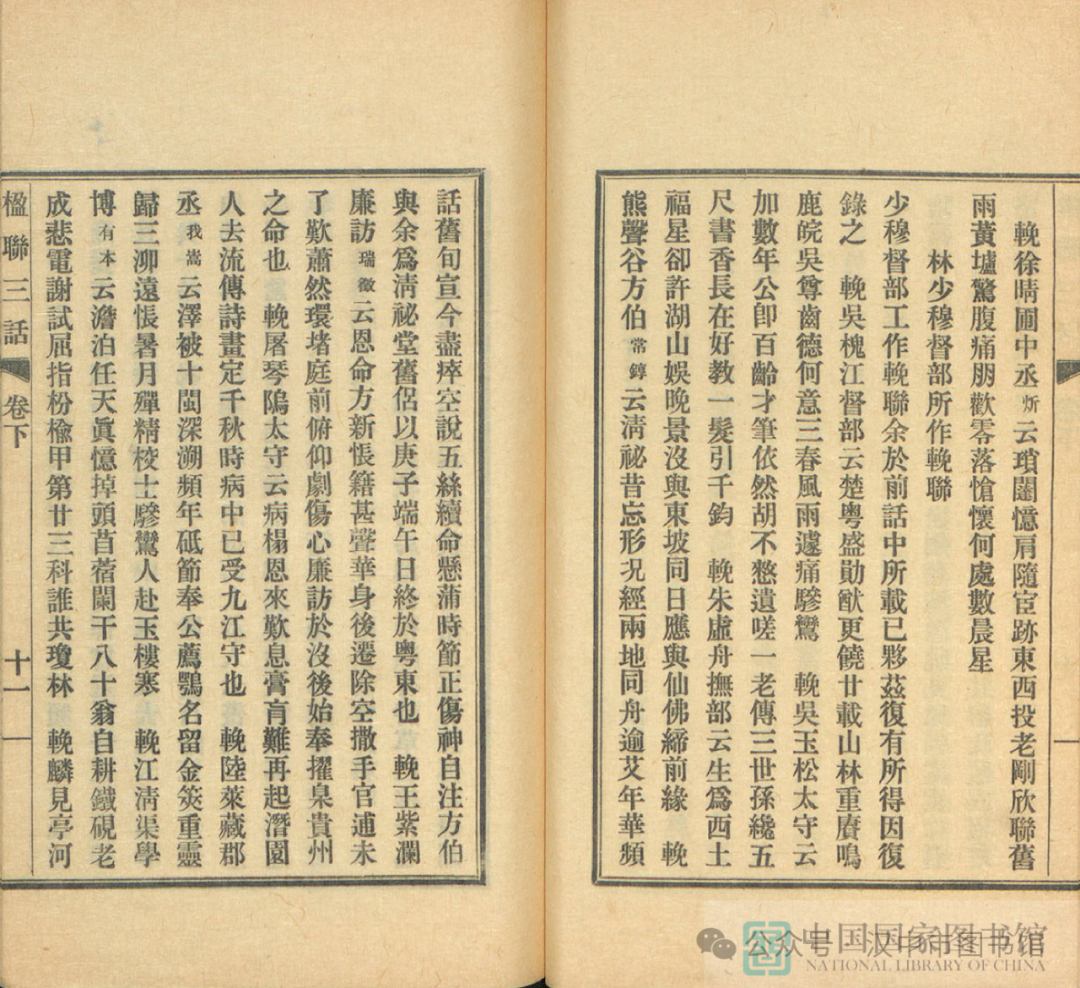 輓徐晴圃中丞炘云瑣闥憶肩隨宦跡東西投老剛欣聯舊
雨黃壚驚腹痛朋歡零落愴懷何處數晨星
林少穆督部所作輓聯
少穆督部工作輓聯余於前話中所載已夥茲復有所得因復
錄之 輓吳槐江督部云楚粵盛勛猷更饒廿載山林重賡鳴
鹿皖吳尊齒德何意三春風雨遽痛驂鸞 輓吳玉松太守云
加數年公卽百齡才筆依然胡不憗遺嗟一老傳三世孫纔五
尺書香長在好教一髮引千鈞 輓朱虛舟撫部云生爲西土
福星卻許湖山娛晚景沒與東坡同日應與仙佛締前緣 輓
熊聲谷方伯常錞云淸祕昔忘形況經兩地同舟逾艾年華頻
話舊句宣今盡瘁空說五絲續命懸蒲時節正傷神自注方伯
與余爲淸祕堂舊侶以庚子端午日終於粵東也 輓王紫瀾
廉訪瑞徵云恩命方新悵籍甚聲華身後遷除空撒手官逋未
了歎蕭然環堵庭前俯仰劇傷心廉訪於沒後始奉擢臬貴州
之命也 輓屠琴隖太守云病榻恩來歎息膏肓難再起潛園
人去流傳詩畫定千秋時病中已受九江守也 輓陸萊藏郡
丞我嵩云澤被十閩深溯頻年砥節奉公薦鶚名留金筴重靈
歸三泖遠悵暑月殫精校士驂鸞人赴玉樓寒 輓江淸渠學
博有本云澹泊任天眞憶掉頭苜蓿闌干八十翁自耕鐵硯老
成悲電謝試屈指枌楡甲第廿三科誰共瓊林 輓麟見亭河
楹聯三話 卷下 十一
中国国家图书馆
NATIONAL LIBRARY OF CHINA
公众号 汉中市图书馆